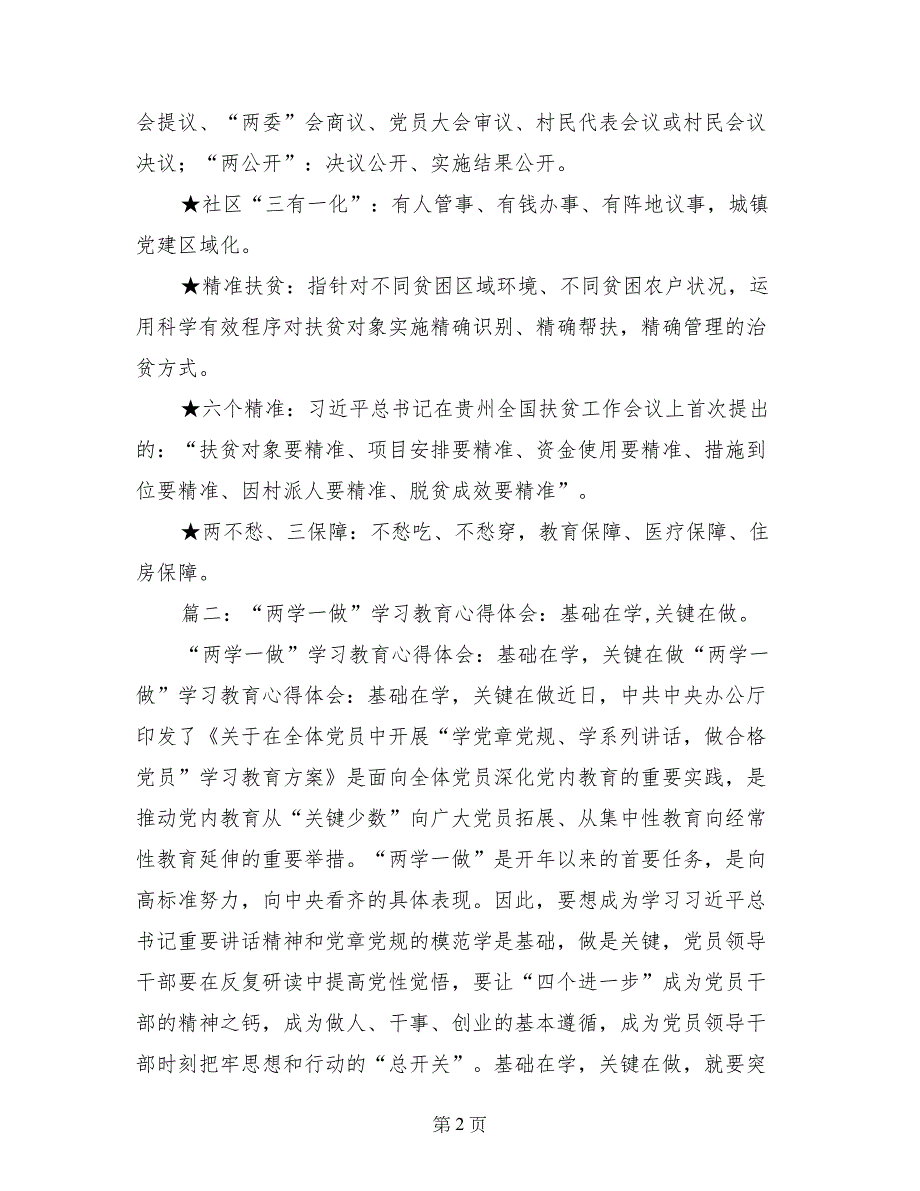 会提议、“两委”会商议、党员大会审议、村民代表会议或村民会议
决议；“两公开”：决议公开、实施结果公开。
★社区“三有一化”：有人管事、有钱办事、有阵地议事，城镇
党建区域化。
★精准扶贫：指针对不同贫困区域环境、不同贫困农户状况，运
用科学有效程序对扶贫对象实施精确识别、精确帮扶，精确管理的治
贫方式。
★六个精准：习近平总书记在贵州全国扶贫工作会议上首次提出
的：“扶贫对象要精准、项目安排要精准、资金使用要精准、措施到
位要精准、因村派人要精准、脱贫成效要精准”。
★两不愁、三保障：不愁吃、不愁穿，教育保障、医疗保障、住
房保障。
篇二：“两学一做”学习教育心得体会：基础在学,关键在做。
“两学一做”学习教育心得体会：基础在学，关键在做“两学一
做”学习教育心得体会：基础在学，关键在做近日，中共中央办公厅
印发了《关于在全体党员中开展“学党章党规、学系列讲话，做合格
党员”学习教育方案》是面向全体党员深化党内教育的重要实践，是
推动党内教育从“关键少数”向广大党员拓展、从集中性教育向经常
性教育延伸的重要举措。“两学一做”是开年以来的首要任务，是向
高标准努力，向中央看齐的具体表现。因此，要想成为学习习近平总
书记重要讲话精神和党章党规的模范学是基础，做是关键，党员领导
干部要在反复研读中提高党性觉悟，要让“四个进一步”成为党员干
部的精神之钙，成为做人、干事、创业的基本遵循，成为党员领导干
部时刻把牢思想和行动的“总开关”。基础在学，关键在做，就要突
第 2 页